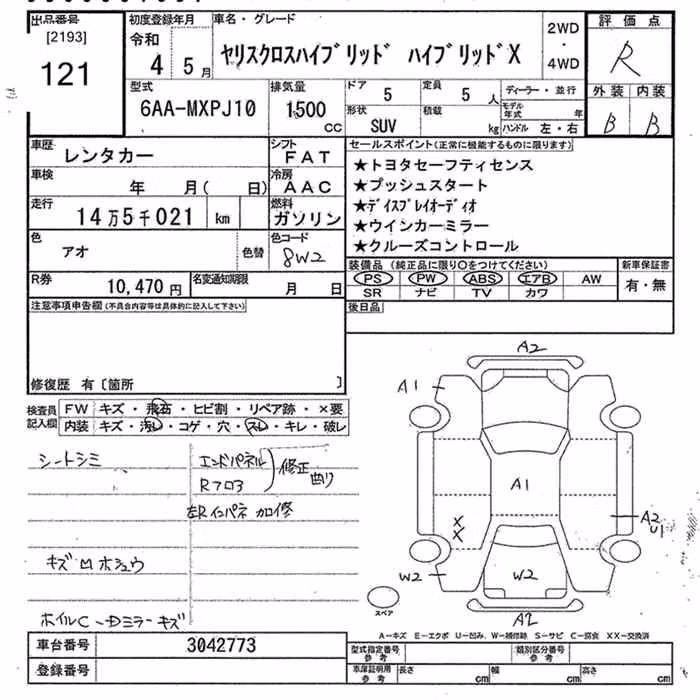 出品番号 初度登録年月 車名・グレード 評価点
[2193] 令和
121 4 5月 ヤリスクロスハイブリッド ハイブリッドX 2WD・4WD R
型式 排気量 ドア 定員 ディーラー・並行 外装 内装
6AA-MXPJ10 1500 CC 5 5人 モデル年式 年 B B
形状 積載
SUV kg ハンドル 左・右
車歴 レンタカー シフト FAT セールスポイント(正常に機能するものに限ります)
車検 年 月( 日) 冷房 AAC ★トヨタセーフティセンス
★プッシュスタート
走行 14万5千021 km 燃料 ガソリン ★ディスプレイオーディオ
★ウインカーミラー
色 アオ 色替 色コード 8W2 ★クルーズコントロール
R券 10,470円 名変通知期限 月 日 装備品(純正品に限り○をつけてください) 新車保証書
PS PW ABS エアB AW 有・無
SR ナビ TV カワ
注意事項申告欄(不具合内容等は具体的に記入して下さい) 後日品
修復歴 有〔箇所 〕
検査員記入欄 FW キズ・飛石・ヒビ割・リペア跡・×要
内装 キズ・汚レ・コゲ・穴・スレ・キレ・破レ
シートシミ エンドパネル 修正
Rフロア 曲り
左Rインパネ カロ修
キズ凹ホシュウ
ホイルC-Dミラーキズ
A2
A1
A1
A2
U1
X
X
W2 W2
A2
スペア
A-キズ E-エクボ U-凹み、W-補修跡 S-サビ C-腐食 XX-交換済
車台番号 3042773 型式指定番号 参考 類別区分番号 参考
登録番号 車庫証明用 参考 長さ cm 幅 cm 高さ cm